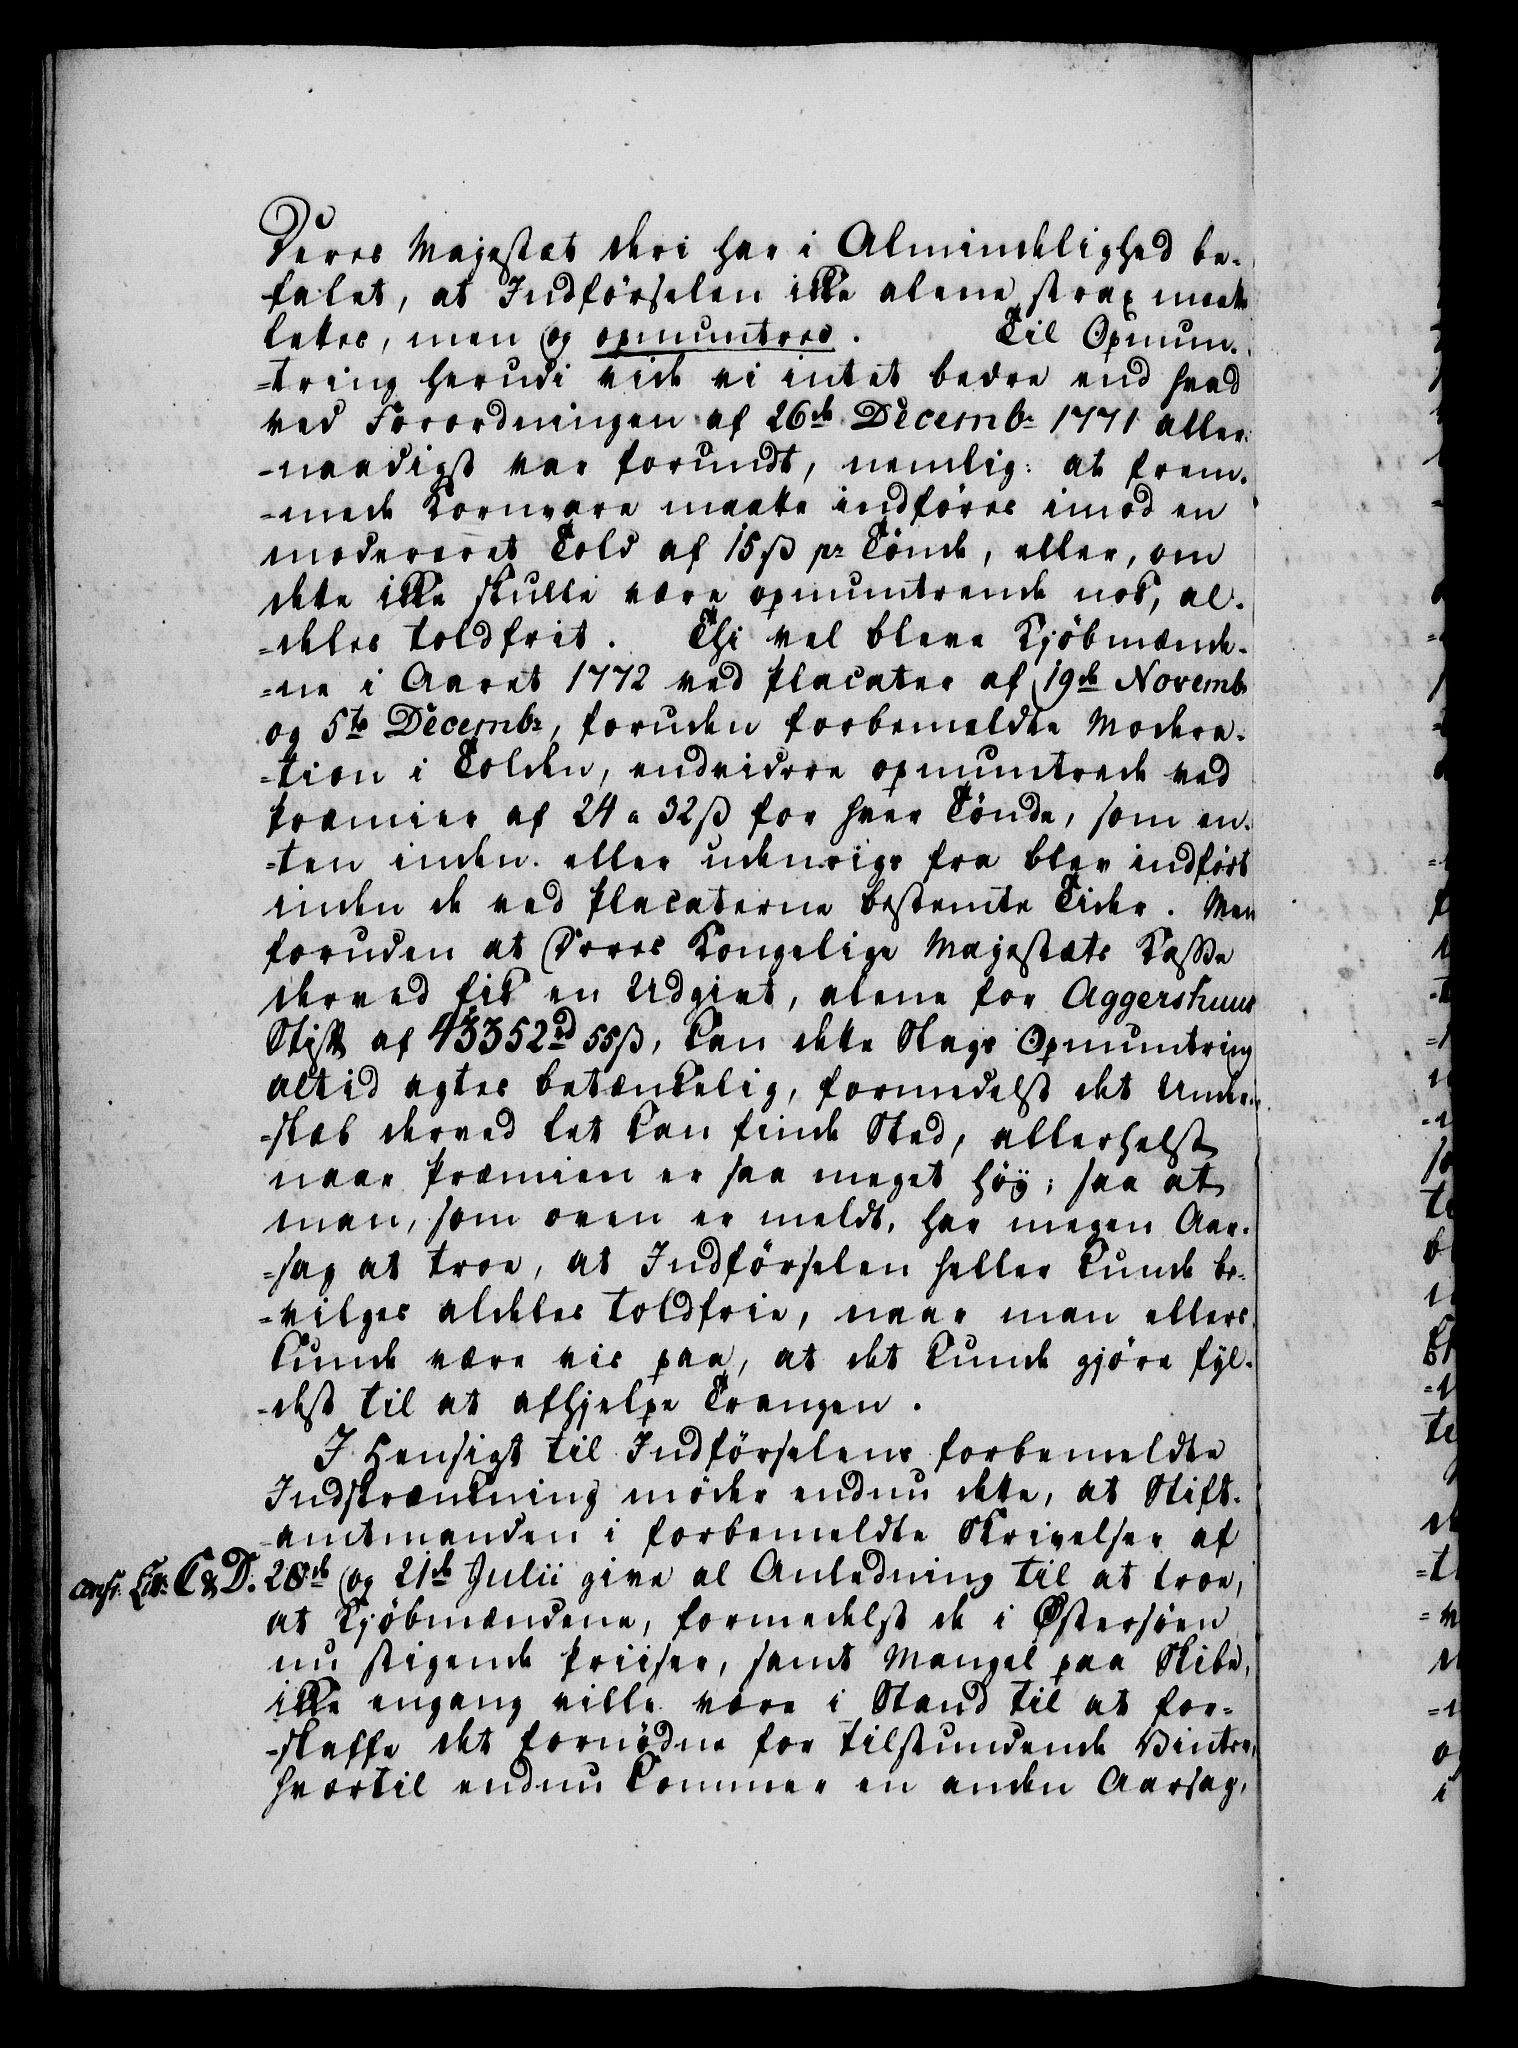 Deres Majestæt deri har i Almindelighed be-
falet, at Indførselen ikke alene strax maatte
lettes, men og opmuntres. Til Opmun-
=tring herudi vide vi intet bedre end hvad
ved Forordningen af 26de Decembr 1771 aller-
=naadigst var forundt, nemlig: at frem-
=mede Kornvare maatte indføres imod en
modereret Told af 15 ß pr Tønde, eller, om
dette ikke skulle være opmuntrende nok, al-
=deles toldfrit. Thi vel bleve Kjøbmænde-
=ne i Aaret 1772 ved Placater af 19de Novembr
og 5te Decembr, foruden forbemeldte Modera-
=tion i Tolden, endvidere opmuntrede ved
Præmier af 24 a 32 ß for hver Tønde, som en-
=ten inden- eller udenrigs fra blev indført
inden de ved Placaterne bestemte Tider. Men
foruden at Deres Kongelige Majestæts Kasse
derved fik en Udgivt, alene for Aggershuus
Stift af 43352 rd 55 ß, kan dette Slags Opmuntring
altid agtes betænkelig, formedelst det Under-
=slæb derved let kan finde Sted, allerhelst
naar Præmien er saa meget høÿ; saa at
man, som oven er meldt, har megen Aar-
=sag at troe, at Indførselen heller kunde be-
=vilges aldeles toldfrie, naar man ellers
kunde være vis paa, at det kunde gjøre fÿl-
=dest til at afhjelpe Trangen.
I Hensigt til Indførselens forbemeldte
Indskrænkning møder endnu dette, at Stift-
=amtmanden i forbemeldte Skrivelser af
Litr: C & D. 28de og 21de Julii give al Anledning til at troe,
at Kjøbmændene, formedelst de i Østersøen
nu stigende Priiser, samt Mangel paa Skibe,
ikke engang ville være i Stand til at for-
=skaffe det fornødne for tilstundende Vinter,
hvortil endnu kommer en anden Aarsag,